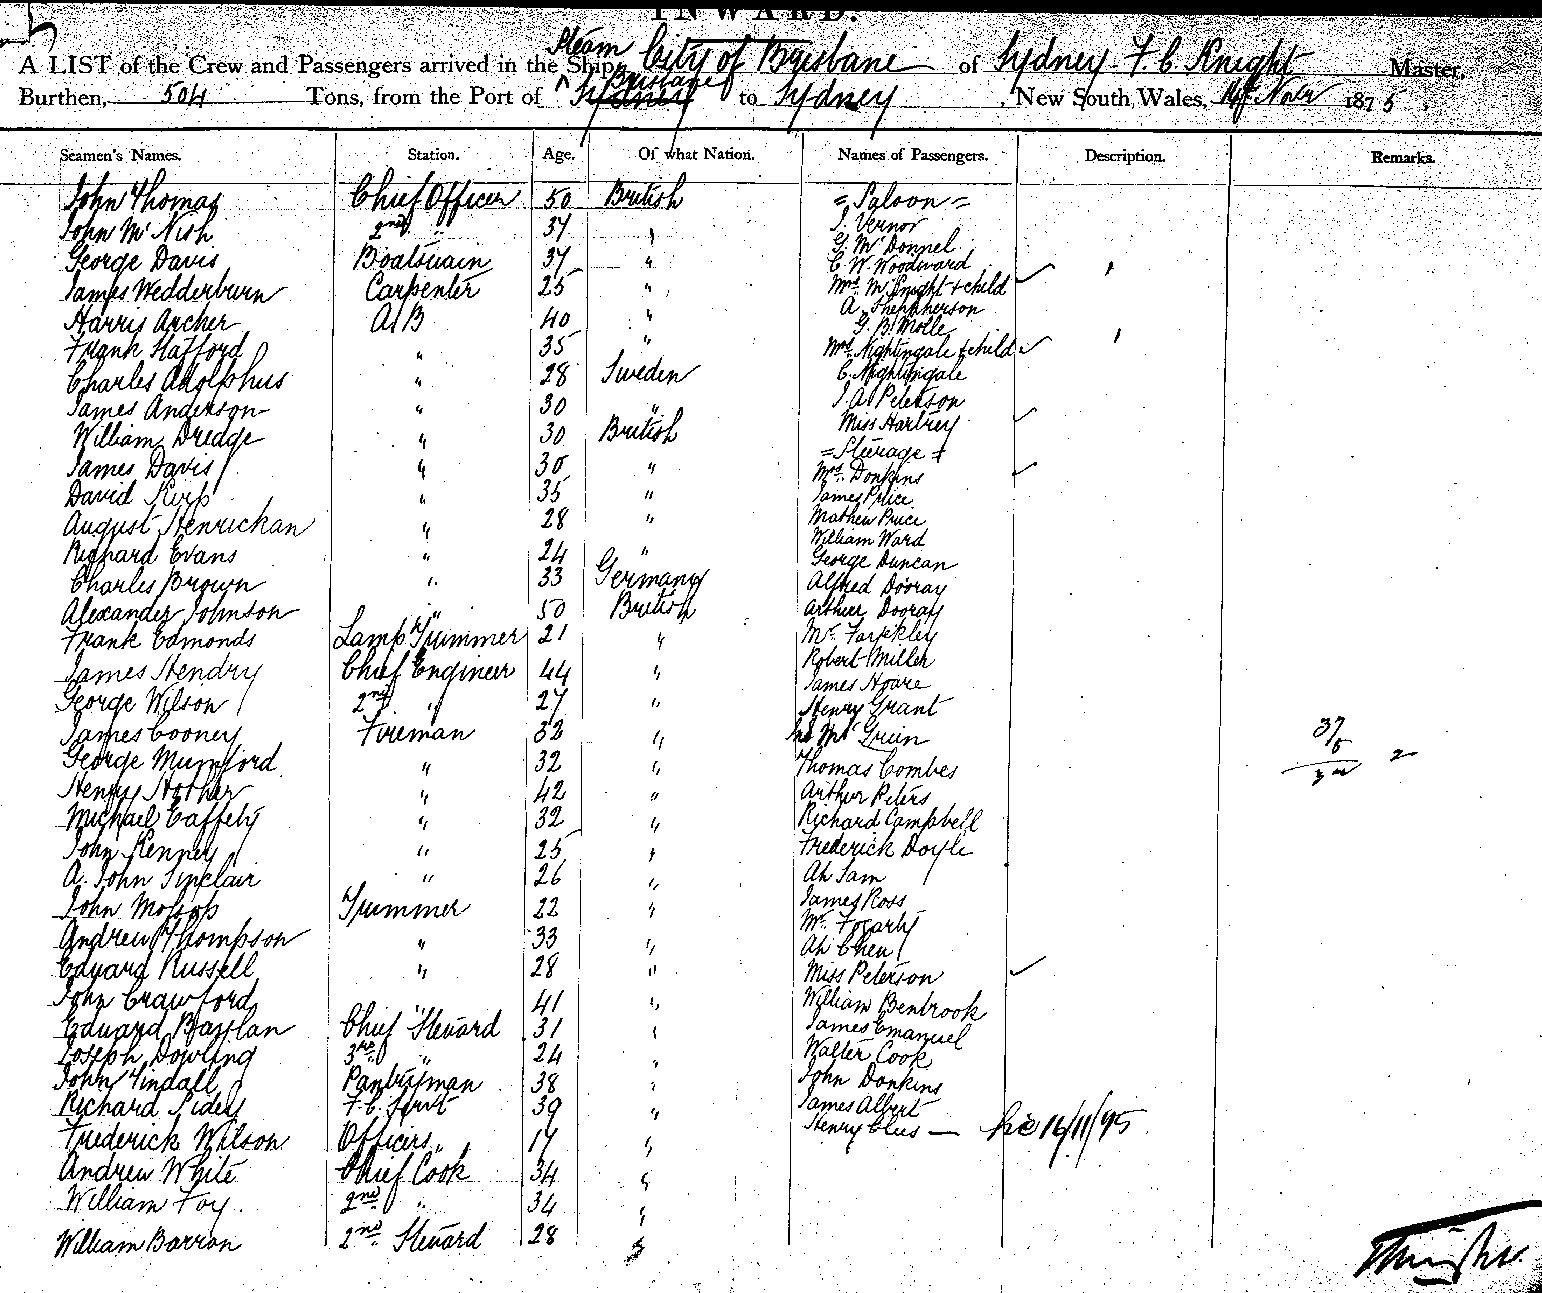 INWARD.
A LIST of the Crew and Passengers arrived in the Ship Steam City of Brisbane of Sydney F. C. Knight Master,
Burthen, 504 Tons, from the Port of Sydney Brisbane to Sydney, New South Wales, 16th Novbr 1875
Seamen's Names. Station. Age. Of what Nation. Names of Passengers. Description. Remarks.
John Thomas Chief Officer 50 British = Saloon =
John McNish 2nd " 37 " J. Vernor
George Davis Boatswain 37 " G. McDonnel
C. W. Woodward
James Wedderburn Carpenter 25 " Mrs. McKnight + child
Harris Archer A B 40 " A. Shephherson
G. B. Molle
Frank Hafford " 35 " Mrs. Nightingale + child
Charles Adolphus " 28 Sweden C. Nightingale
James Anderson " 30 " J. A. Peterson
William Dredge " 30 British Miss Hartrey
= Steerage =
James Davis " 30 " Mrs. Donkins
David Kirk " 35 " James Price
August Henrickan " 28 " Mathew Price
William Ward
Richard Evans " 24 " George Duncan
Charles Brown " 33 Germany Alfred Dooray
Alexander Johnson " 50 British Arthur Dooray
Frank Edmonds Lamp Trimmer 21 " Mr.
James Hendry Chief Engineer 44 " Robert Miller
James Hoare
George Wilson 2nd " 27 " Henry Grant
James Cooney Fireman 32 " Mc Gruin
George Mumford " 32 " Thomas Combes
Henry Hother " 42 " Arthur Peters
Michael Caffely " 32 " Richard Campbell
John Kenney " 25 " Frederick Doyle
A. John Sinclair " 26 " Ah Sam
John Mossop Trimmer 22 " James Ross
Andrew Thompson " 33 " Mr. Fogarty
Ah Chen
Edward Russell " 28 " Miss Peterson
John Crawford " 41 " William Benbrook
Edward Baylan Chief Steward 31 " James Emanuel
Joseph Dowling 3rd " 24 " Walter Cook
John Tindall Pantryman 38 " John Donkins
Richard Sidey F. C. Servt 39 " James Albert
Frederick Wilson Officers " 17 " Henry Clies — 16/11/75
Andrew White Chief Cook 34 "
William Foy 2nd " 34 "
William Barron 2nd Steward 28 "